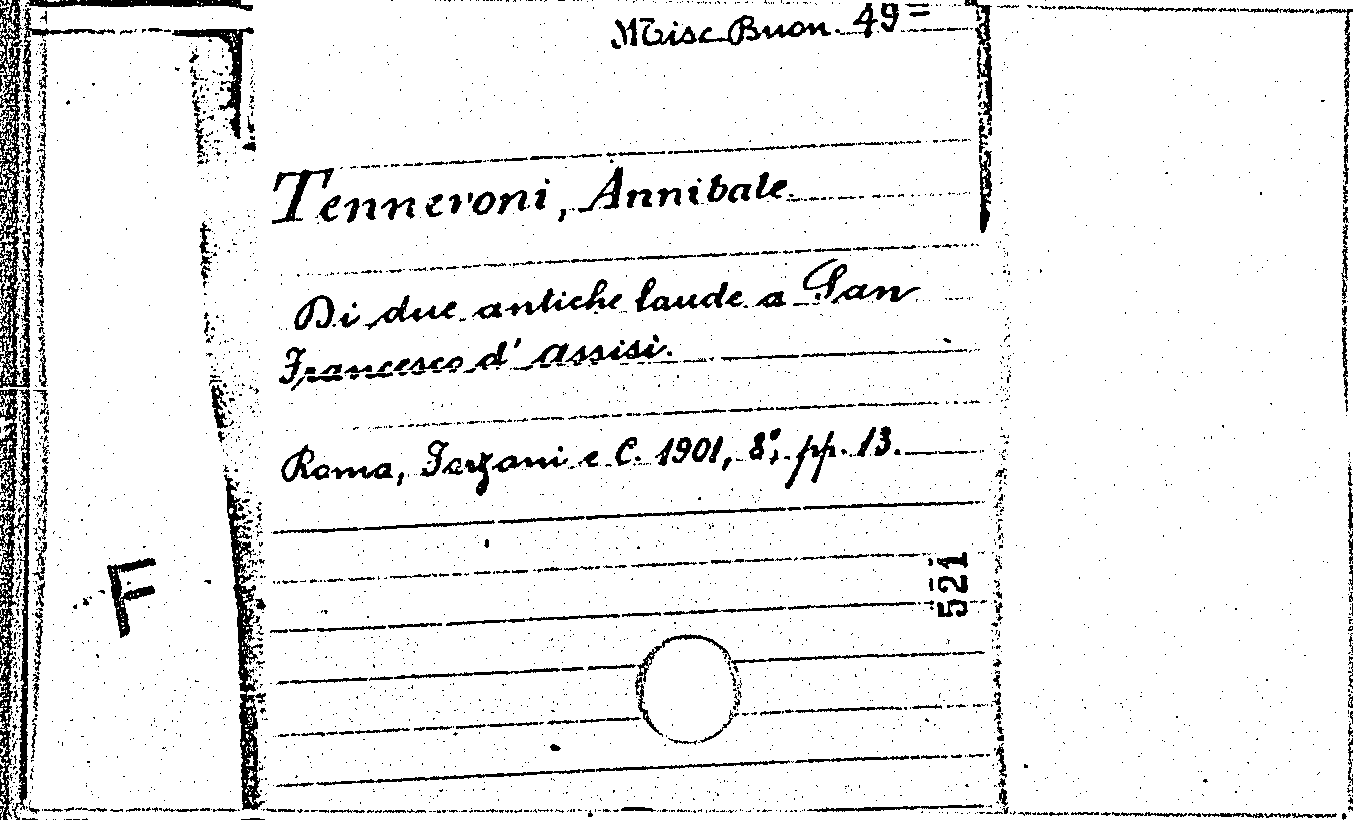 Misc Buon. 49=
Tenneroni, Annibale.
Di due antiche laude a San
Francesco d' Assisi.
Roma, Forzani e C. 1901, 8°, pp. 13.
521
F